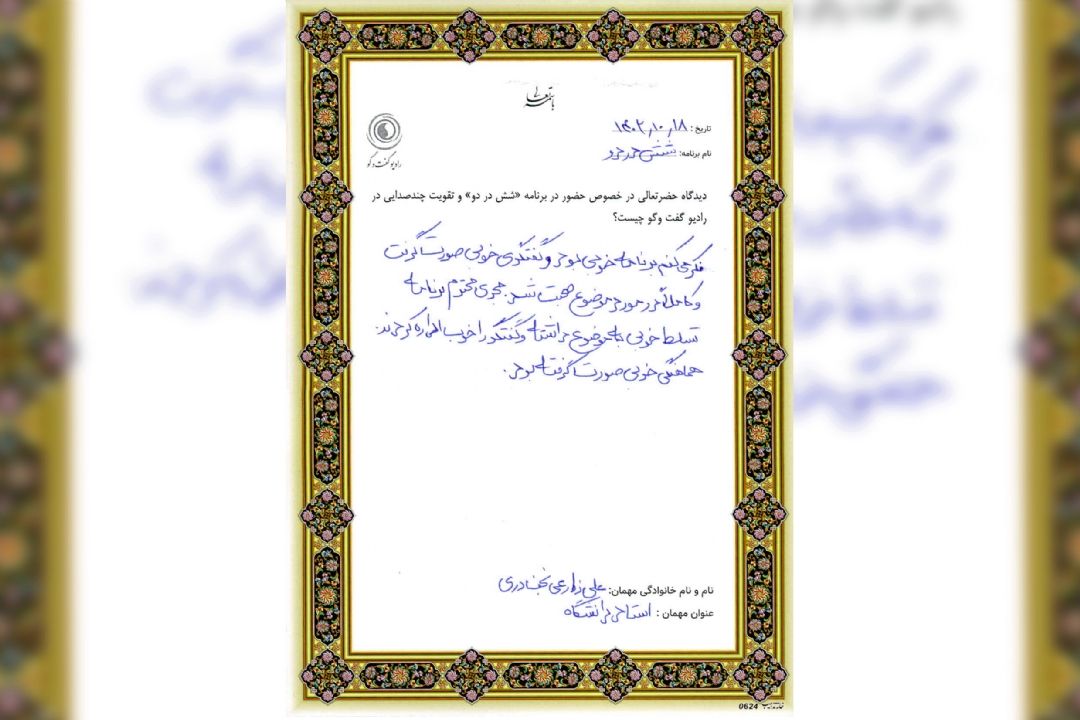 باسمه تعالی
رادیو گفت و گو
تاریخ: ۱۴۰۲٫۱۰٫۱۸
نام برنامه: شش در دو
دیدگاه حضرتعالی در خصوص حضور در برنامه «شش در دو» و تقویت چندصدایی در
رادیو گفت وگو چیست؟
فکر می‌کنم برنامه خوبی بود و گفتگوی خوبی صورت گرفت
و کاملاً در مورد موضوع صحبت شد. مجری محترم برنامه
تسلط خوبی به موضوع داشته و گفتگو را خوب اداره کردند.
هماهنگی خوبی صورت گرفته بود.
نام و نام خانوادگی مهمان: علی زارعی نجفدری
عنوان مهمان : استاد دانشگاه
0624